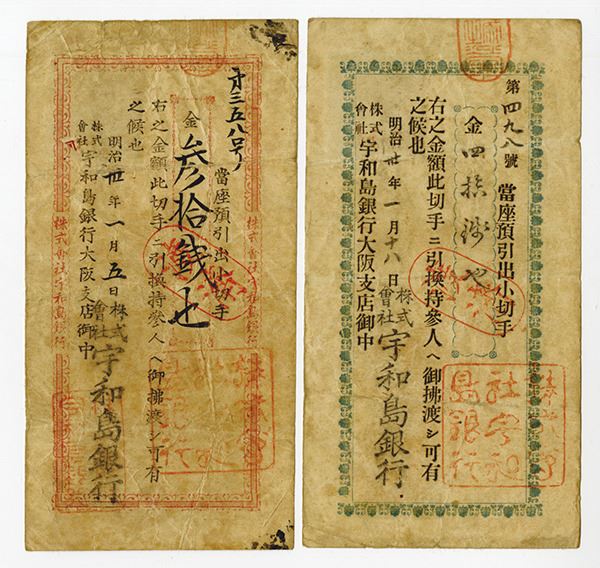 第三五八号
當座預引出小切手
金 参拾銭也
右之金額此切手ニ引換持參人ヘ御拂渡シ可有
之候也
明治卅年一月五日
株式會社宇和島銀行
株式會社宇和島銀行大阪支店御中
株式會社宇和島銀行
株式會社宇和島銀行
第四九八號
當座預引出小切手
金 四拾銭也
右之金額此切手ニ引換持參人ヘ御拂渡シ可有
之候也
明治卅年一月十八日
株式會社宇和島銀行
株式會社宇和島銀行大阪支店御中
株式會社宇和島銀行